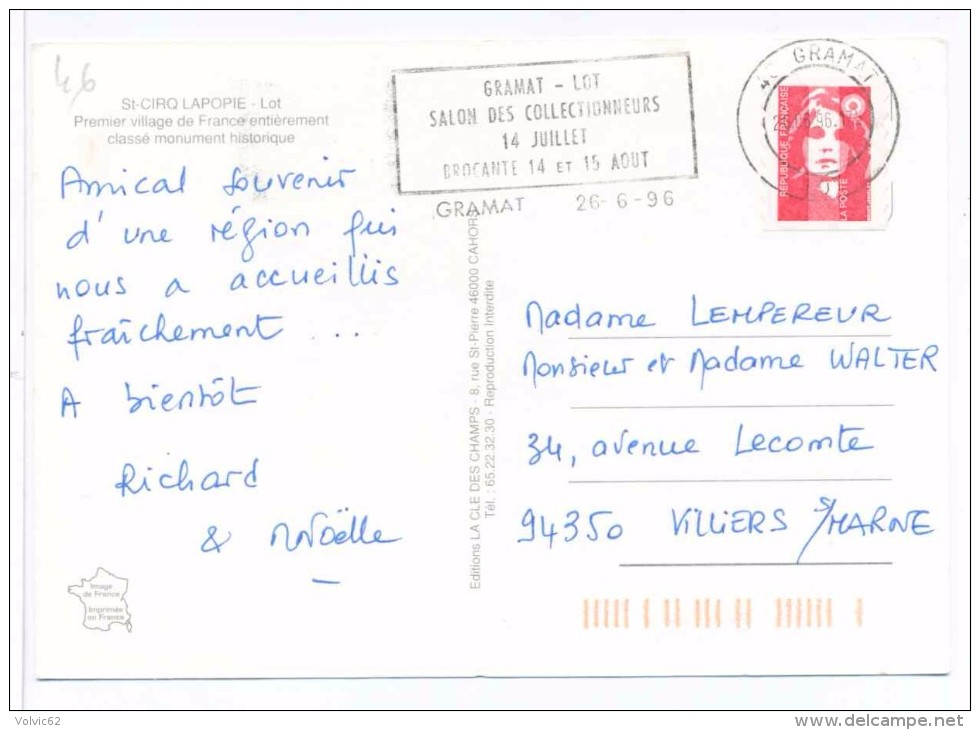 46
St-CIRQ LAPOPIE - Lot
Premier village de France entièrement
classé monument historique
Amical souvenir
d'une région qui
nous a accueillis
fraîchement ...
A bientôt
Richard
& Noëlle
Image
de France
Imprimée
en France
GRAMAT - LOT
SALON DES COLLECTIONNEURS
14 JUILLET
BROCANTE 14 ET 15 AOUT
GRAMAT 26-6-96
46 GRAMAT
96
REPUBLIQUE FRANÇAISE
LA POSTE
Editions LA CLE DES CHAMPS - 8, rue St-Pierre 46000 CAHORS
Tél. : 65.22.32.30 - Reproduction Interdite
Madame LEMPEREUR
Monsieur et Madame WALTER
34, avenue Lecomte
94350 VILLIERS S/MARNE
Volvic62
www.delcampe.net